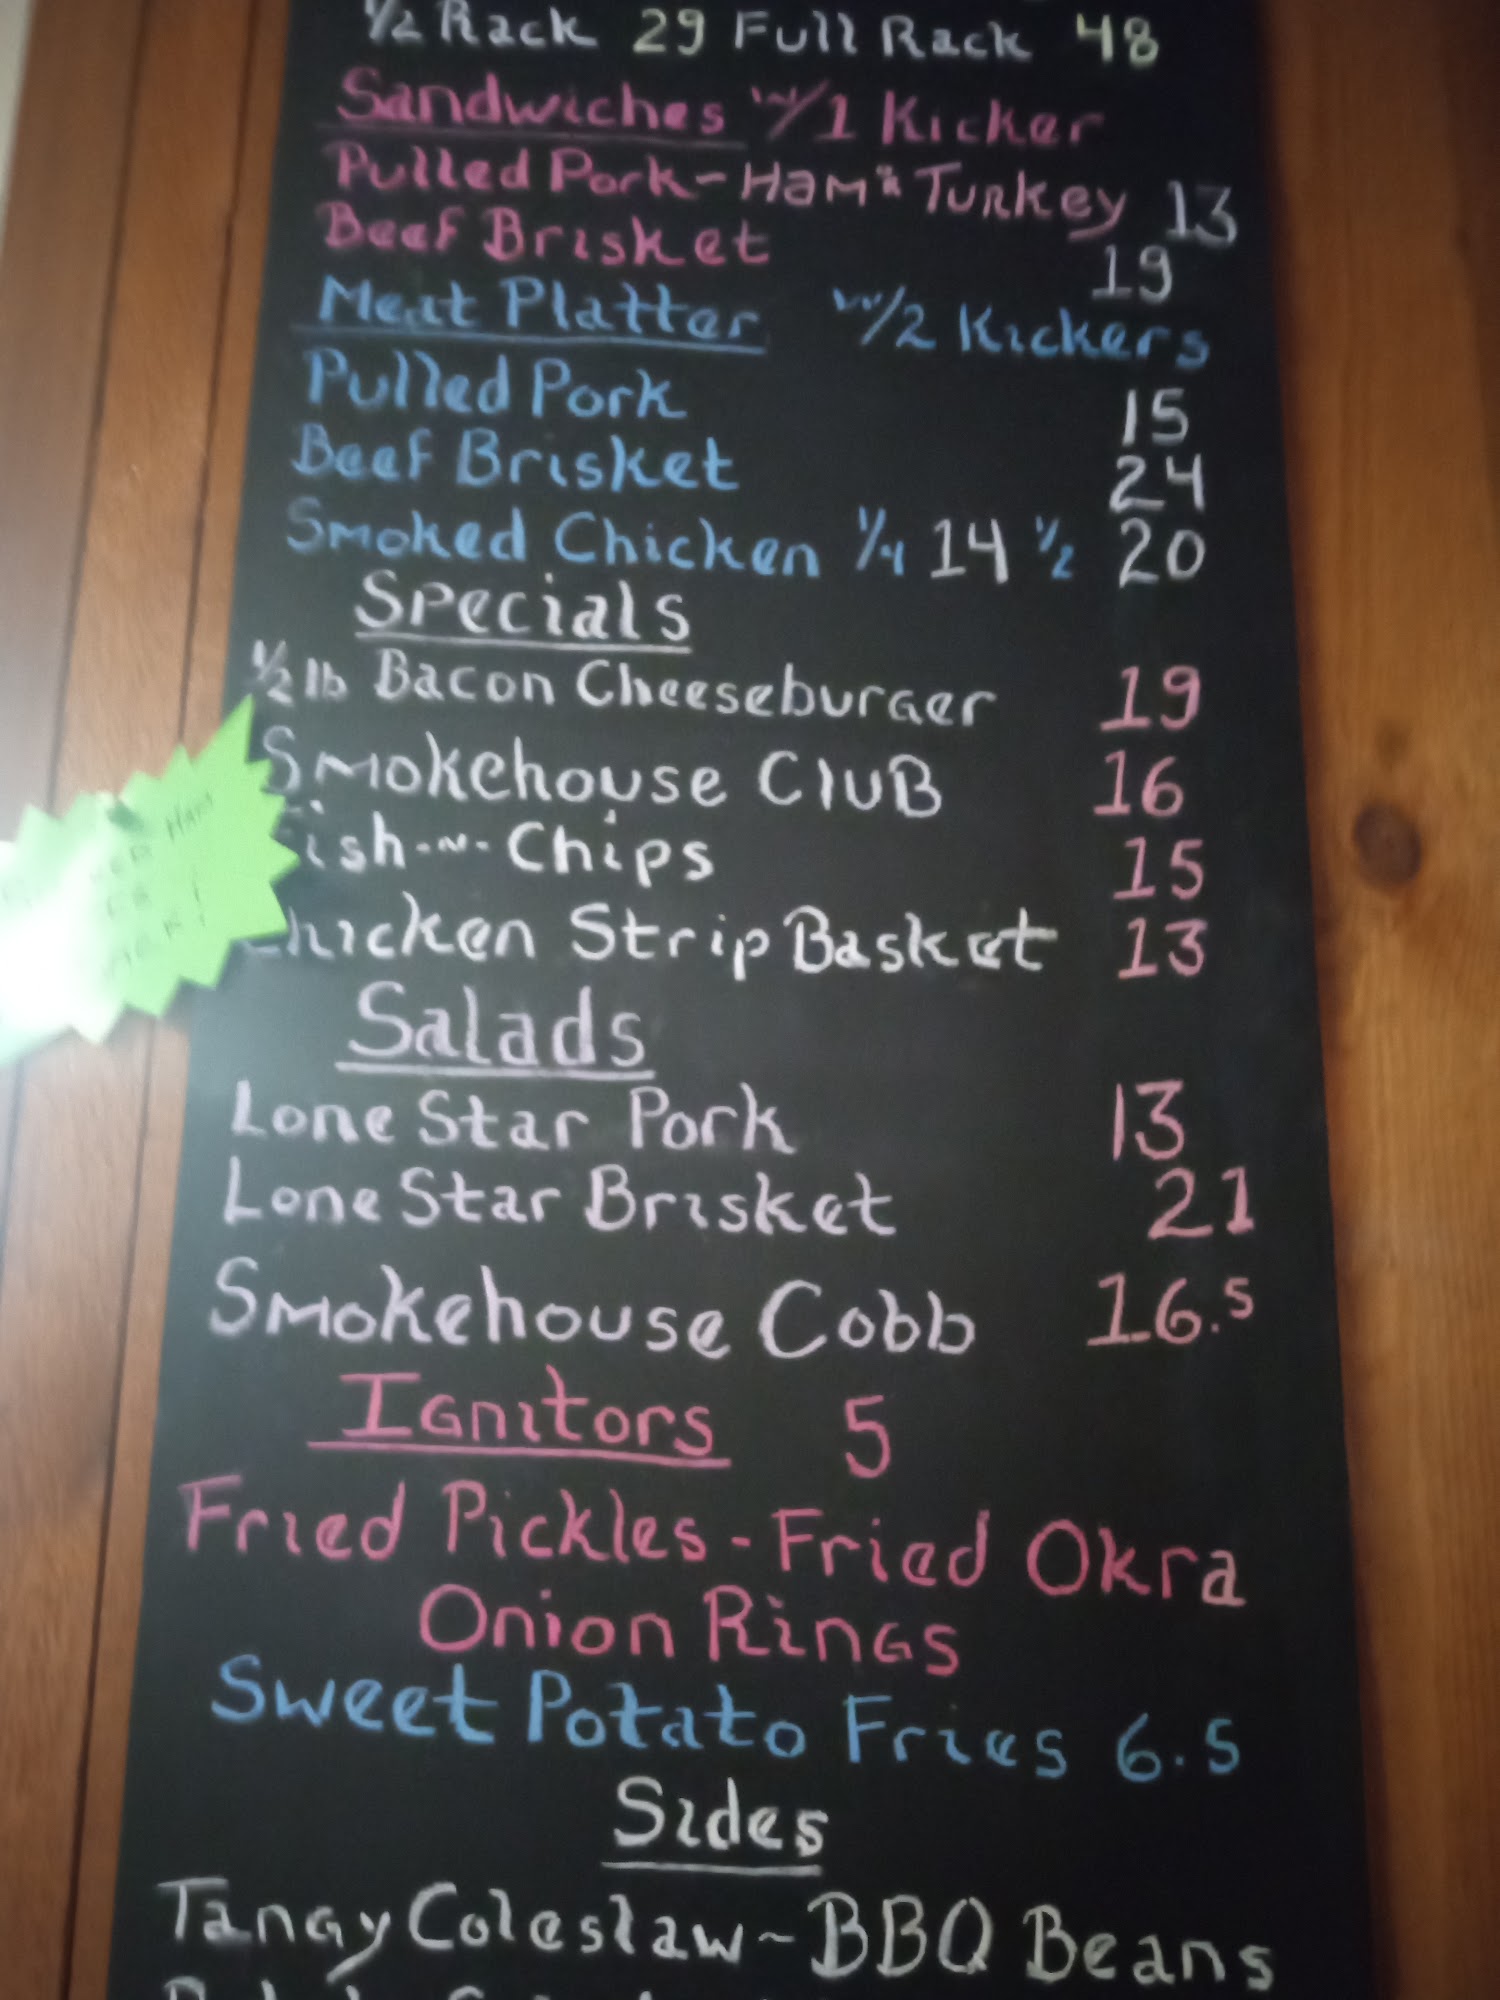 1/2 Rack 29 Full Rack 48
Sandwiches w/1 Kicker
Pulled Pork - Ham & Turkey 13
Beef Brisket 19
Meat Platter w/2 Kickers
Pulled Pork 15
Beef Brisket 24
Smoked Chicken 1/4 14 1/2 20
Specials
1/2 lb Bacon Cheeseburger 19
Smokehouse Club 16
Fish-n-Chips 15
Chicken Strip Basket 13
Salads
Lone Star Pork 13
Lone Star Brisket 21
Smokehouse Cobb 16.5
Ignitors 5
Fried Pickles - Fried Okra
Onion Rings
Sweet Potato Fries 6.5
Sides
Tangy Coleslaw ~ BBQ Beans